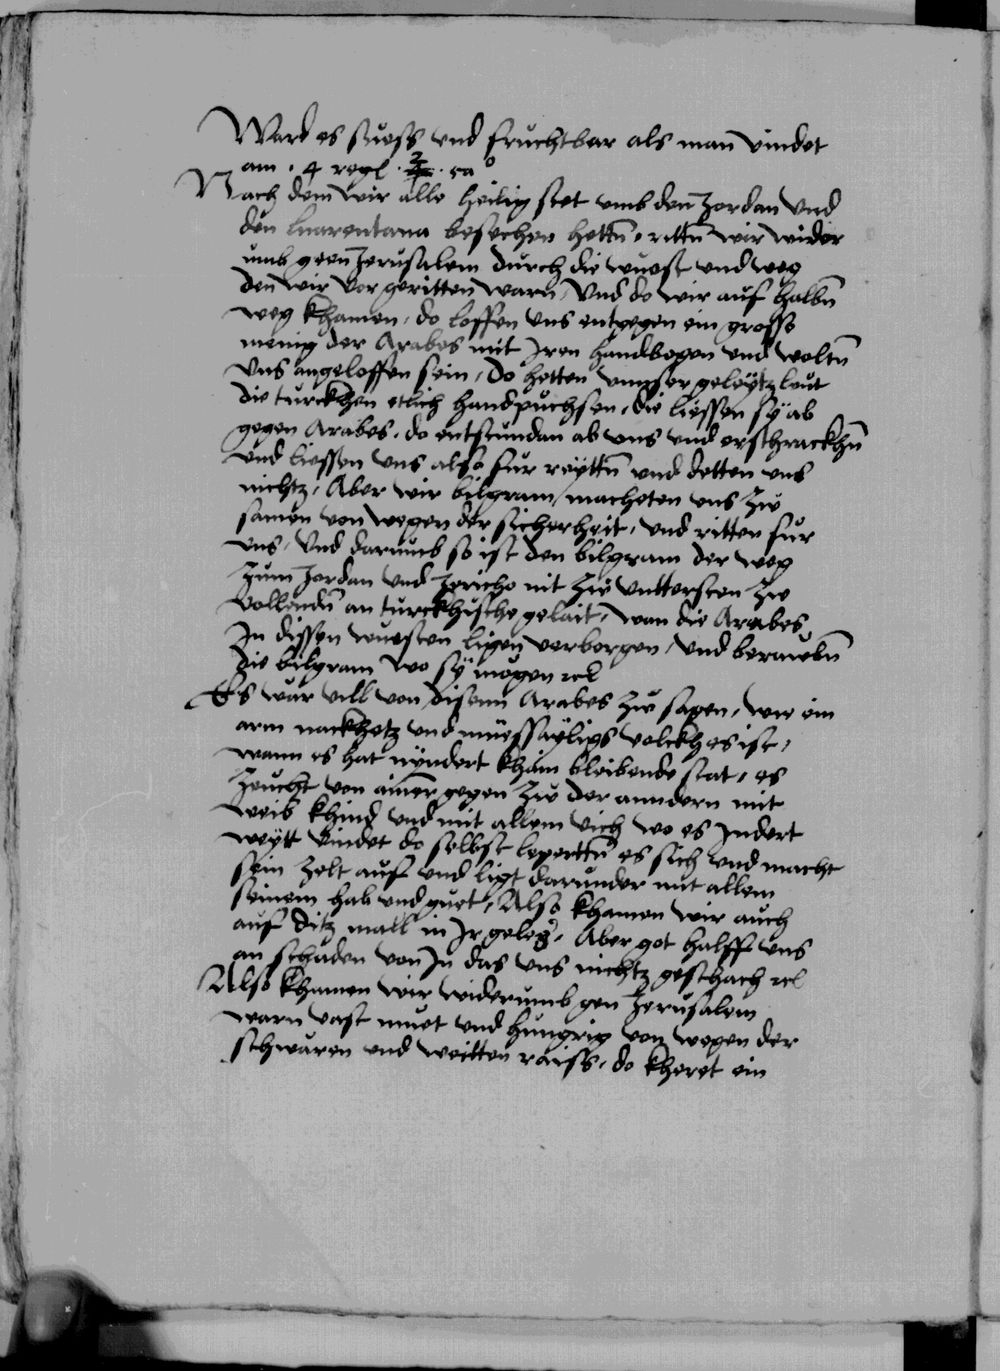 Ward es suess vnd fruchtbar als man vindet
am . 4 regl . 2 . ca°
Nach dem wir alle heilig stet vmb den Jordan vnd
den quarentana besechen hettn̄ , rittn̄ wir wider
vmb geen Jerusalem durch die wuest vnd weg
den wir vor geritten warn , Vnd do wir auf halbn̄
weg khamen , do loffen vns entgegen ein grosse
menig der Arabes mit Jren handbogen vnd woltn̄
vns angeloffen sein , Do hetten vnnser geleytzleut
die turckhen etlich handpuchsen , die liessen sÿ ab
gegen Arabes , do entstundan ab vns vnd erschrackhn̄
vnd liessen vns also fur reyttn̄ vnd detten vns
nichtz , Aber wir bilgram macheten vns zw
samen von wegen der sicherheit , vnd ritten fur
vns , Vnd darumb so ist den bilgram der weg
zum Jordan vnd Jericho nit zw vnttersten zw
vollendn̄ an turckhische gelait , wan die Arabes
Jn dissen wuesten ligen verborgen , vnd beraubn̄
die bilgram wo sÿ mogen rcl
Es war vill von disenn Arabes zw sagen , wie ein
arm nackhetz vnd muessäyligs volckh es ist ,
wann es hat nyndert kham bleibende stat , es
zeucht von ainer gegen zw der anndern mit
weib khind vnd mit allem vich wo es Jndert
weytt vindet do selbst legerttn̄ es sich vnd macht
sein zelt auf vnd ligt darunder mit allem
seinem hab vnd guet , Also khamen wir auch
auf ditz mall in Jr geleg̃ , Aber got halff vns
an schaden von Jn das vns nichtz geschach rcl
Also khamen wir widerumb gen Jerusalem
warn vast muet vnd hungrig von wegen der
schwären vnd weitten raiss , do kheret ein